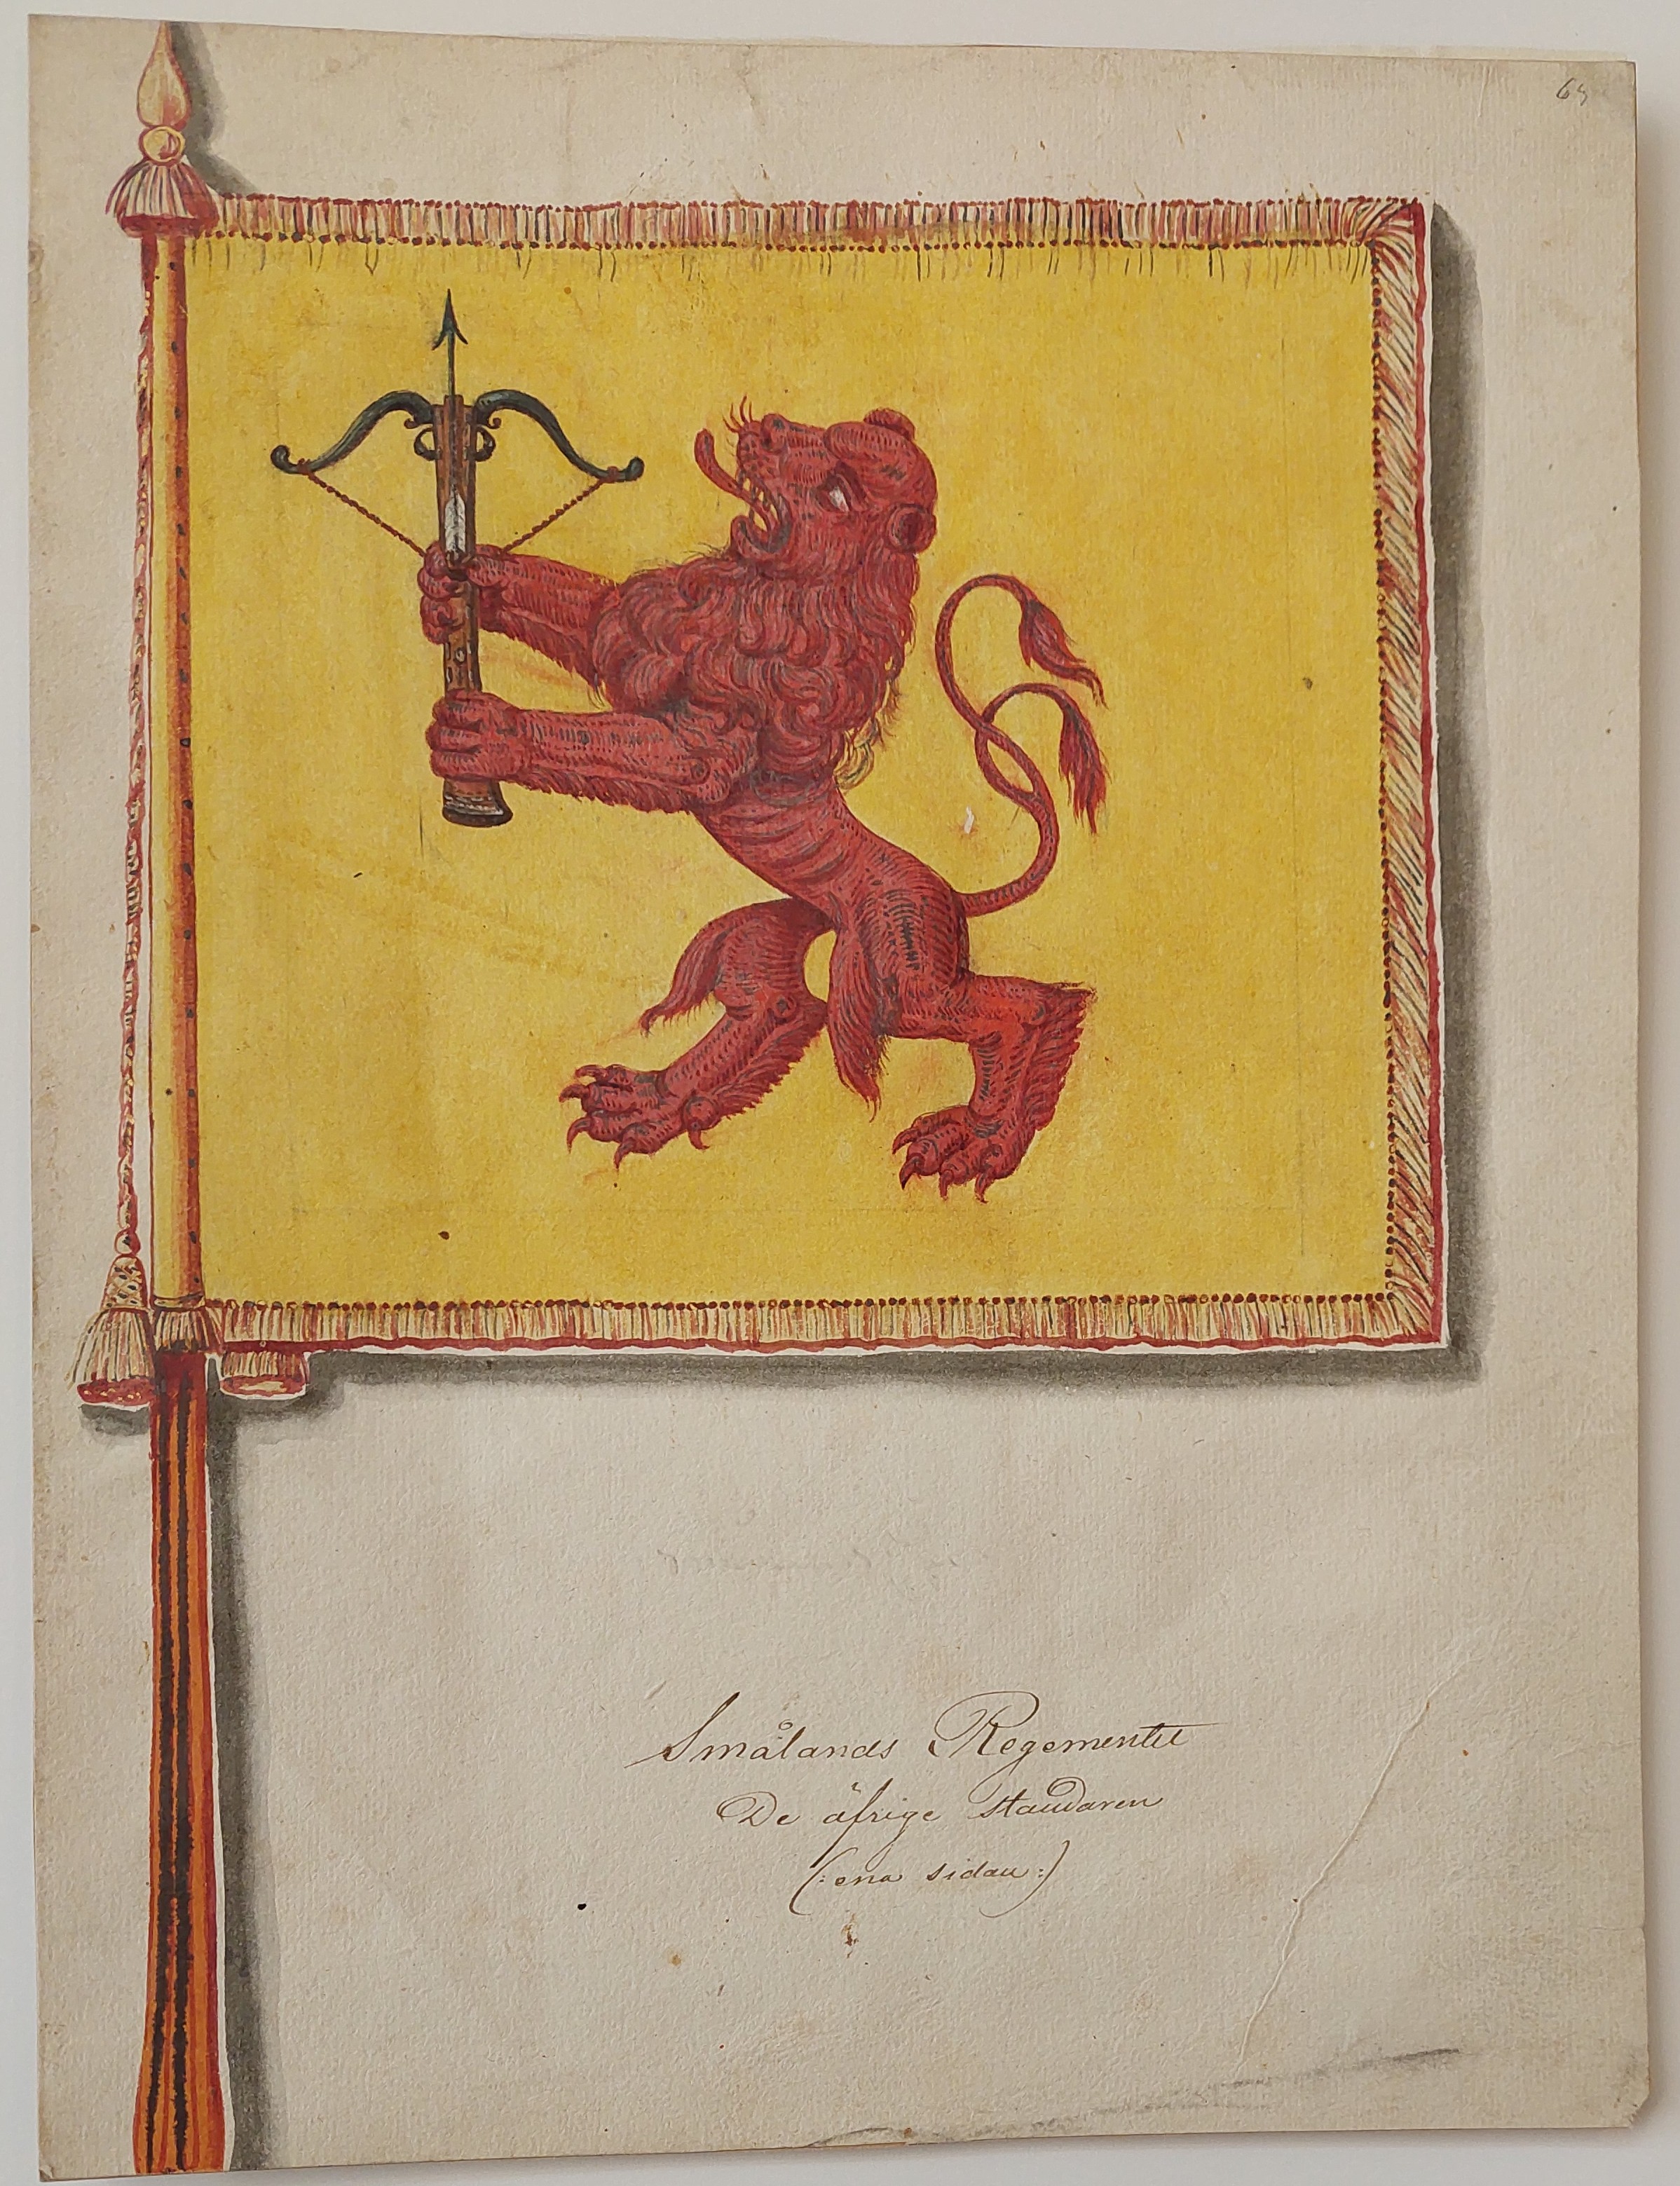 Smålands Regementte
De äfrige Standaren
(: ena sidan :)